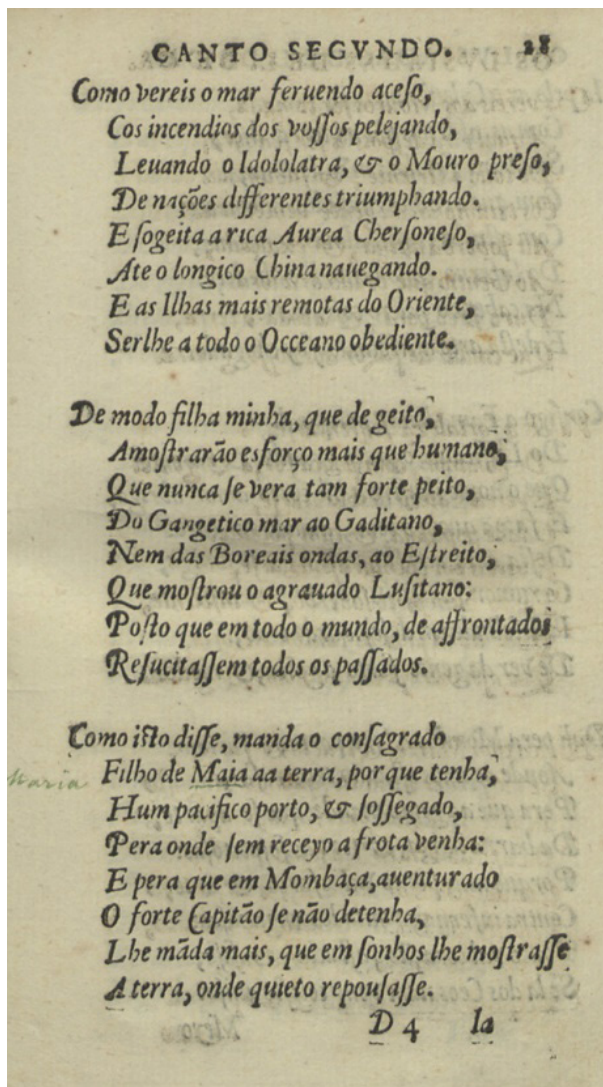 CANTO SEGVNDO. 28
Como vereis o mar feruendo aceſo,
Cos incendios dos voſſos pelejando,
Leuando o Idololatra, & o Mouro preſo,
De nações differentes triumphando.
E ſogeita a rica Aurea Cherſoneſo,
Ate o longico China nauegando.
E as Ilhas mais remotas do Oriente,
Serlhe a todo o Occeano obediente.
De modo filha minha, que de geito,
Amoſtrarão esforço mais que humano,
Que nunca ſe vera tam forte peito,
Do Gangetico mar ao Gaditano,
Nem das Boreais ondas, ao Eſtreito,
Que moſtrou o agrauado Luſitano:
Poſto que em todo o mundo, de affrontados
Reſucitaſſem todos os paſſados.
Como iſto diſſe, manda o conſagrado
Maria
Filho de Maia aa terra, por que tenha,
Hum pacifico porto, & ſoſſegado,
Pera onde ſem receyo a frota venha:
E pera que em Mombaça, auenturado
O forte Capitão ſe não detenha,
Lhe mãda mais, que em ſonhos lhe moſtraſſe
A terra, onde quieto repouſaſſe.
D 4 Ia